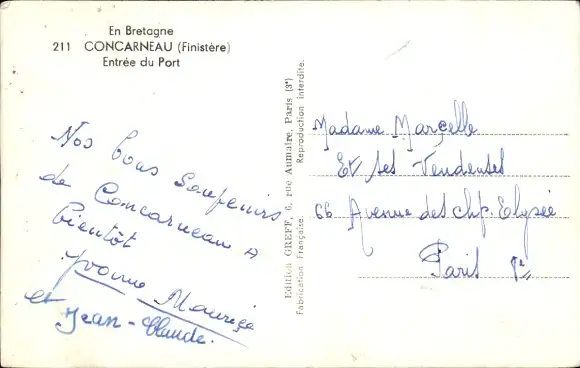 En Bretagne
211 CONCARNEAU (Finistère)
Entrée du Port
Nos bons Souvenirs
de Concarneau A
bientôt
Yvonne Maurice
et Jean-Claude.
Edition GREFF, 6, rue Aumaire, Paris (3e)
Fabrication Française. Reproduction interdite.
Madame Marcelle
Et ses Vendeuses
66 Avenue des chp. Elysée
Paris 8e